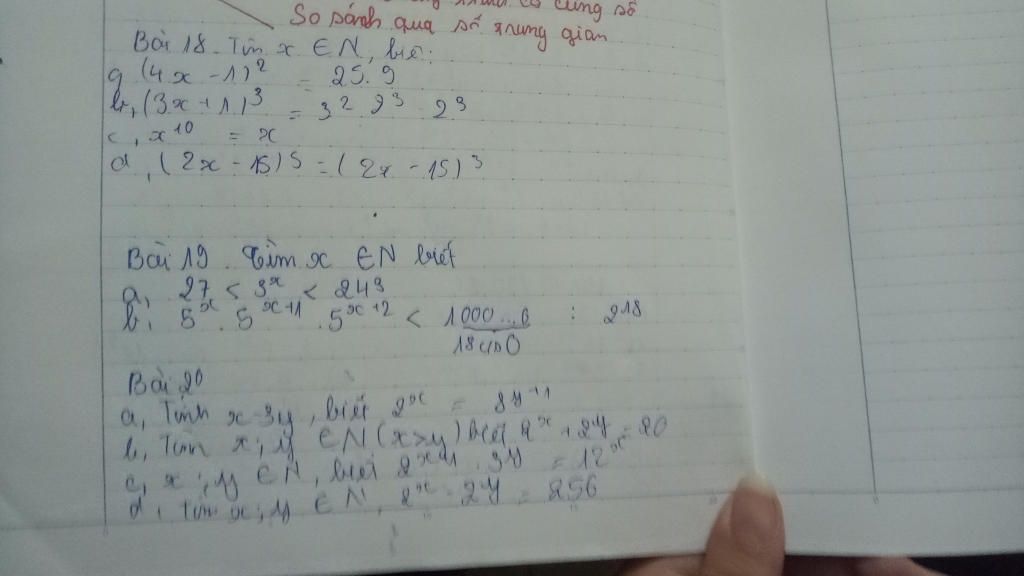 có cùng số
So sánh qua số trung gian
Bài 18. Tìm x ∈ N, biết:
a, (4x - 1)² = 25.9
b, (3x + 1)³ = 3² 2³ 2³
c, x¹⁰ = x
d, (2x - 15)⁵ = (2x - 15)³
Bài 19. Tìm x ∈ N biết
a, 27 < 3ˣ < 243
b, 5ˣ . 5ˣ⁺¹ . 5ˣ⁺² < 1000...0 : 2¹⁸
18 c/s 0
Bài 20
a, Tính x - 3y, biết 2ˣ = 8ʸ⁺¹
b, Tìm x; y ∈ N (x > y) biết 2ˣ + 2ʸ = 20
c, x; y ∈ N, biết 2ˣ⁺¹ . 3ʸ = 12ˣ
d, tìm x; y ∈ N, 2ˣ - 2ʸ = 256